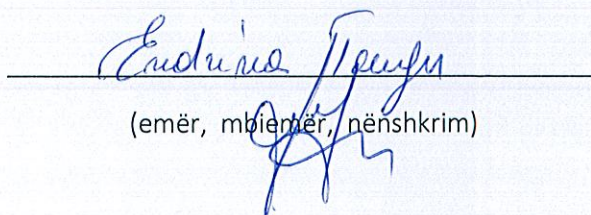 Endrina
(emër, mbiemër, nënshkrim)